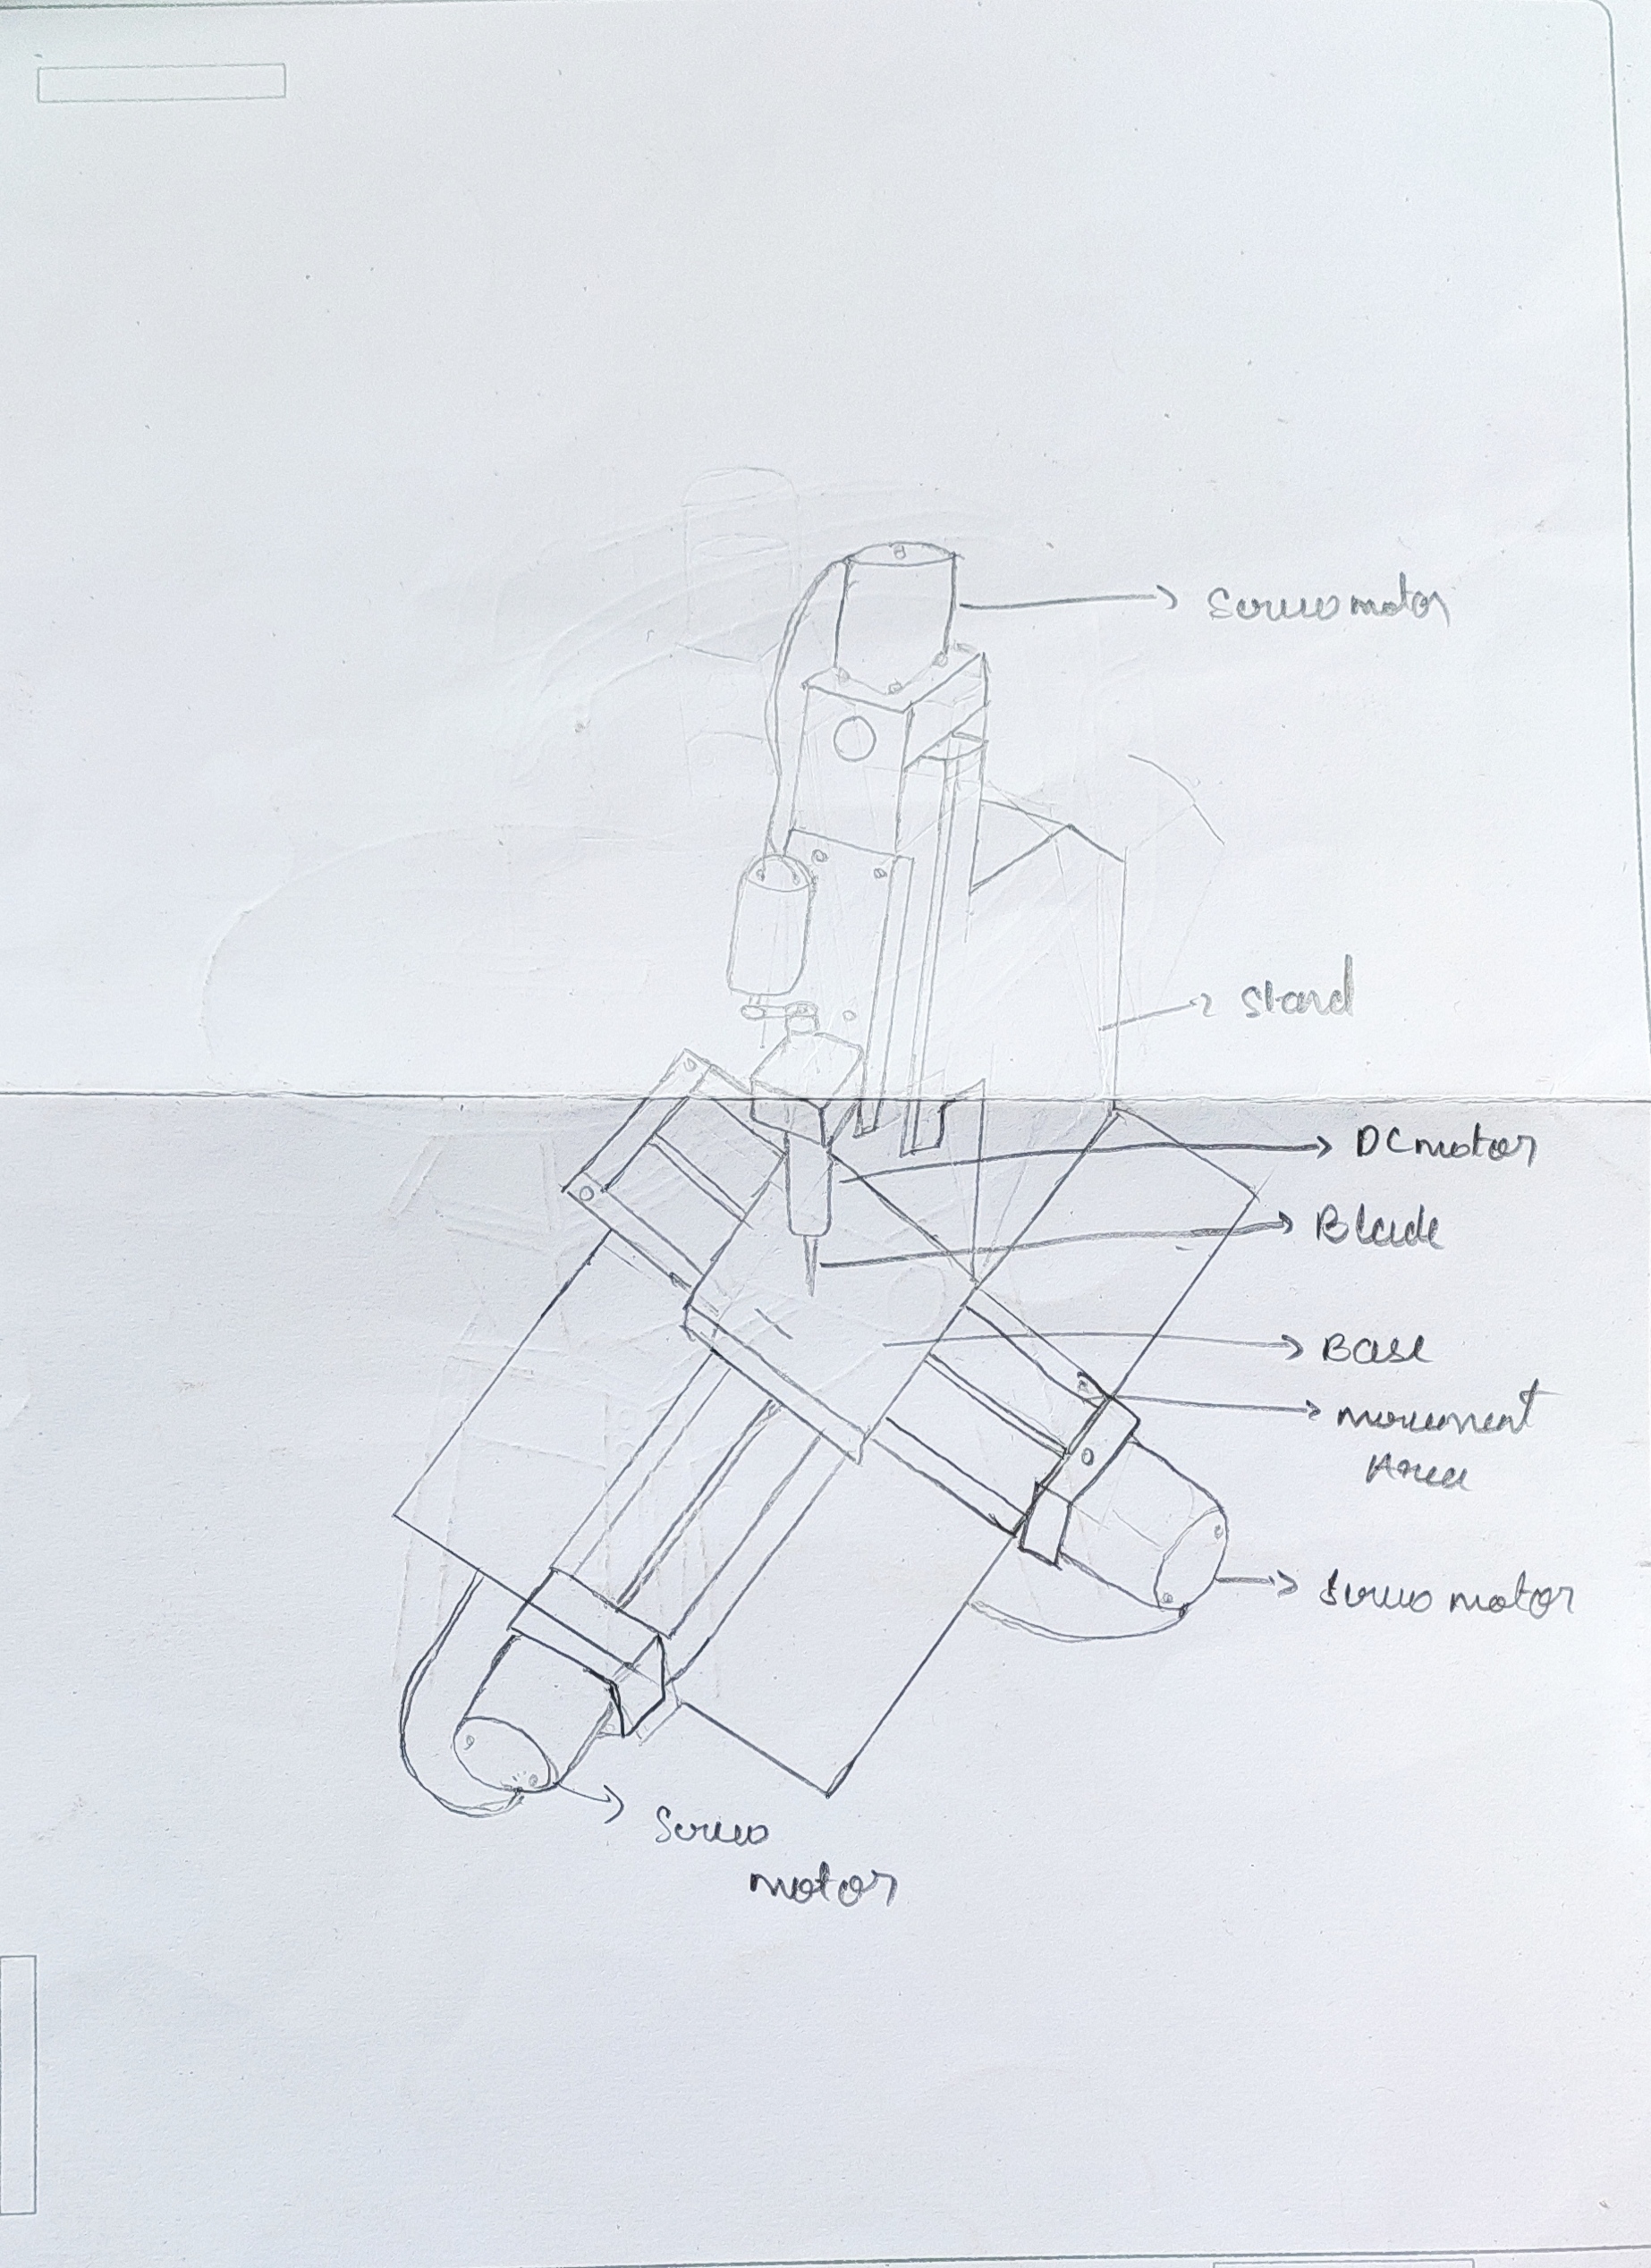 Servo motor
Stand
DC motor
Blade
Base
movement
Area
Servo motor
Servo
motor